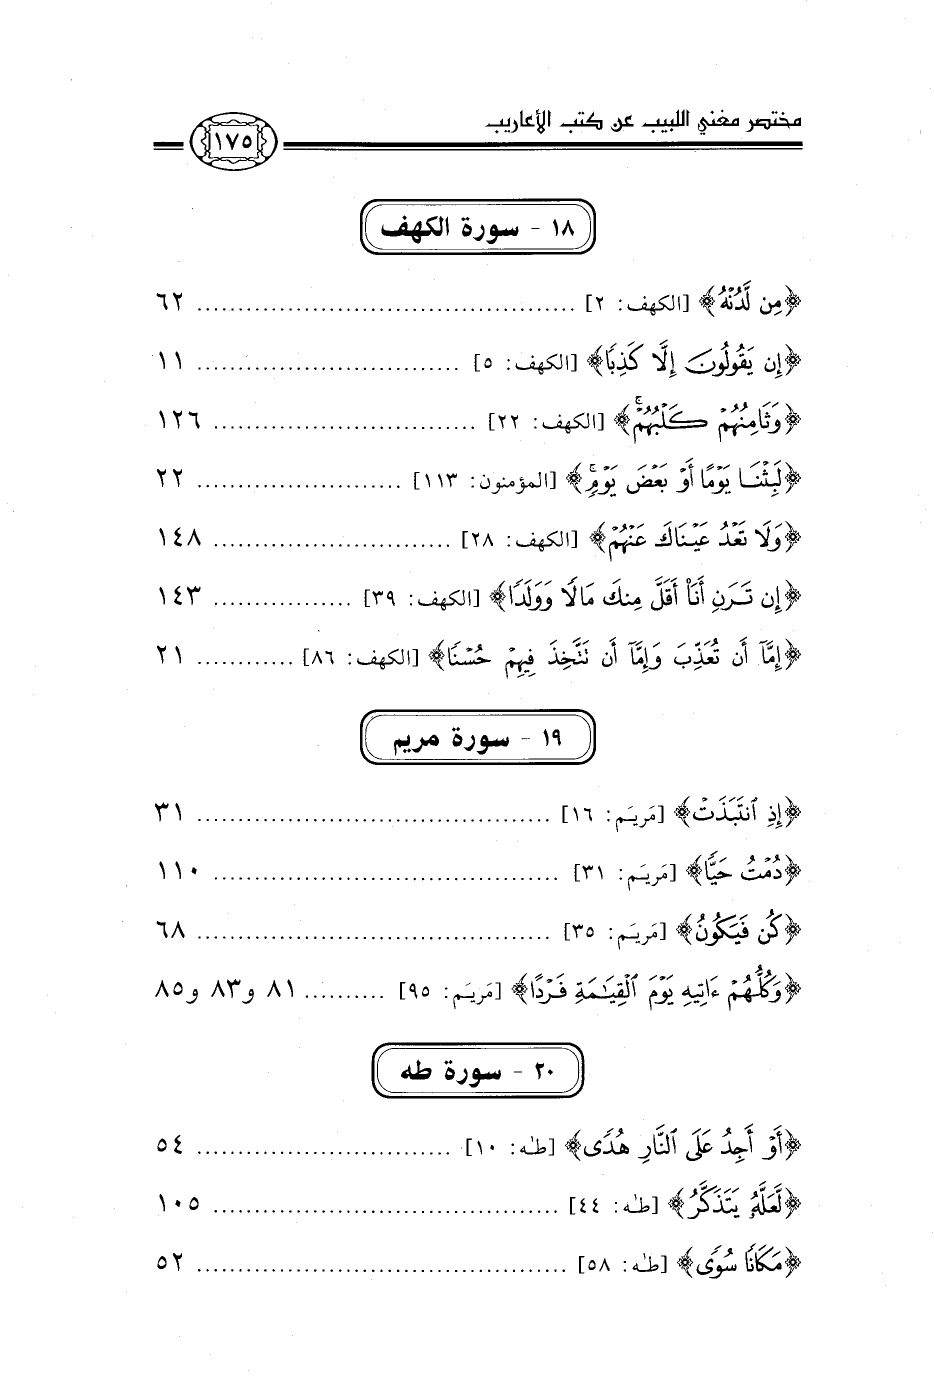 مختصر مغني اللبيب عن كتب الأعاريب
١٧٥
١٨ - سورة الكهف
﴿مِن لَّدُنْهُ﴾ [الكهف: ٢] ............................................. ٦٢
﴿إِن يَقُولُونَ إِلَّا كَذِبًا﴾ [الكهف: ٥] ................................ ١١
﴿وَثَامِنُهُمْ كَلْبُهُمْ ۚ﴾ [الكهف: ٢٢] ................................ ١٢٦
﴿لَبِثْنَا يَوْمًا أَوْ بَعْضَ يَوْمٍ ۚ﴾ [المؤمنون: ١١٣] ......................... ٢٢
﴿وَلَا تَعْدُ عَيْنَاكَ عَنْهُمْ﴾ [الكهف: ٢٨] ............................. ١٤٨
﴿إِن تَرَنِ أَنَا۠ أَقَلَّ مِنكَ مَالًا وَوَلَدًا﴾ [الكهف: ٣٩] ................. ١٤٣
﴿إِمَّآ أَن تُعَذِّبَ وَإِمَّآ أَن نَتَّخِذَ فِيهِمْ حُسْنًا﴾ [الكهف: ٨٦] ............ ٢١
١٩ - سورة مريم
﴿إِذِ ٱنتَبَذَتْ﴾ [مَريَم: ١٦] ........................................... ٣١
﴿دُمْتُ حَيًّا﴾ [مَريَم: ٣١] .......................................... ١١٠
﴿كُن فَيَكُونُ﴾ [مَريَم: ٣٥] ........................................... ٦٨
﴿وَكُلُّهُمْ ءَاتِيهِ يَوْمَ ٱلْقِيَٰمَةِ فَرْدًا﴾ [مَريَم: ٩٥] .......... ٨١ و٨٣ و٨٥
٢٠ - سورة طه
﴿أَوْ أَجِدُ عَلَى ٱلنَّارِ هُدًى﴾ [طٰه: ١٠] ............................... ٥٤
﴿لَّعَلَّهُۥ يَتَذَكَّرُ﴾ [طٰه: ٤٤] .......................................... ١٠٥
﴿مَكَانًا سُوًى﴾ [طٰه: ٥٨] ............................................. ٥٢